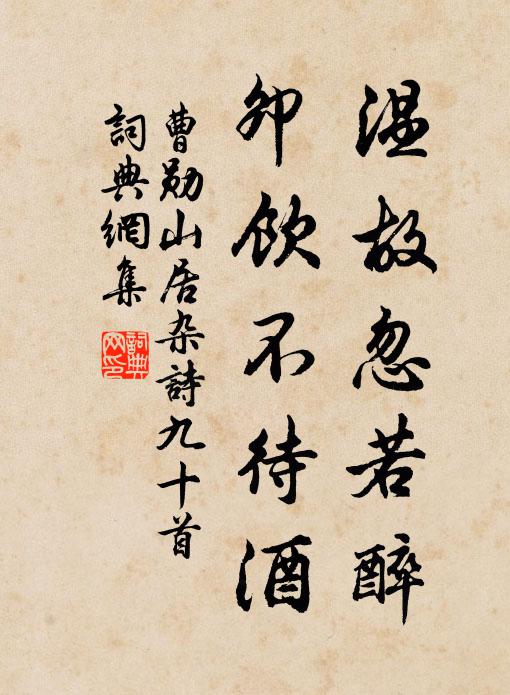 温故忽若醉
卯飲不待酒
曹勛山居杂詩九十首
詞典網集
詞典
网印